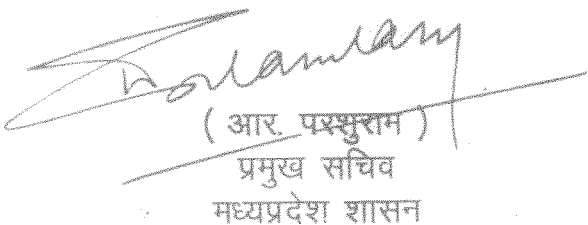 ( आर. परशुराम )
प्रमुख सचिव
मध्यप्रदेश शासन